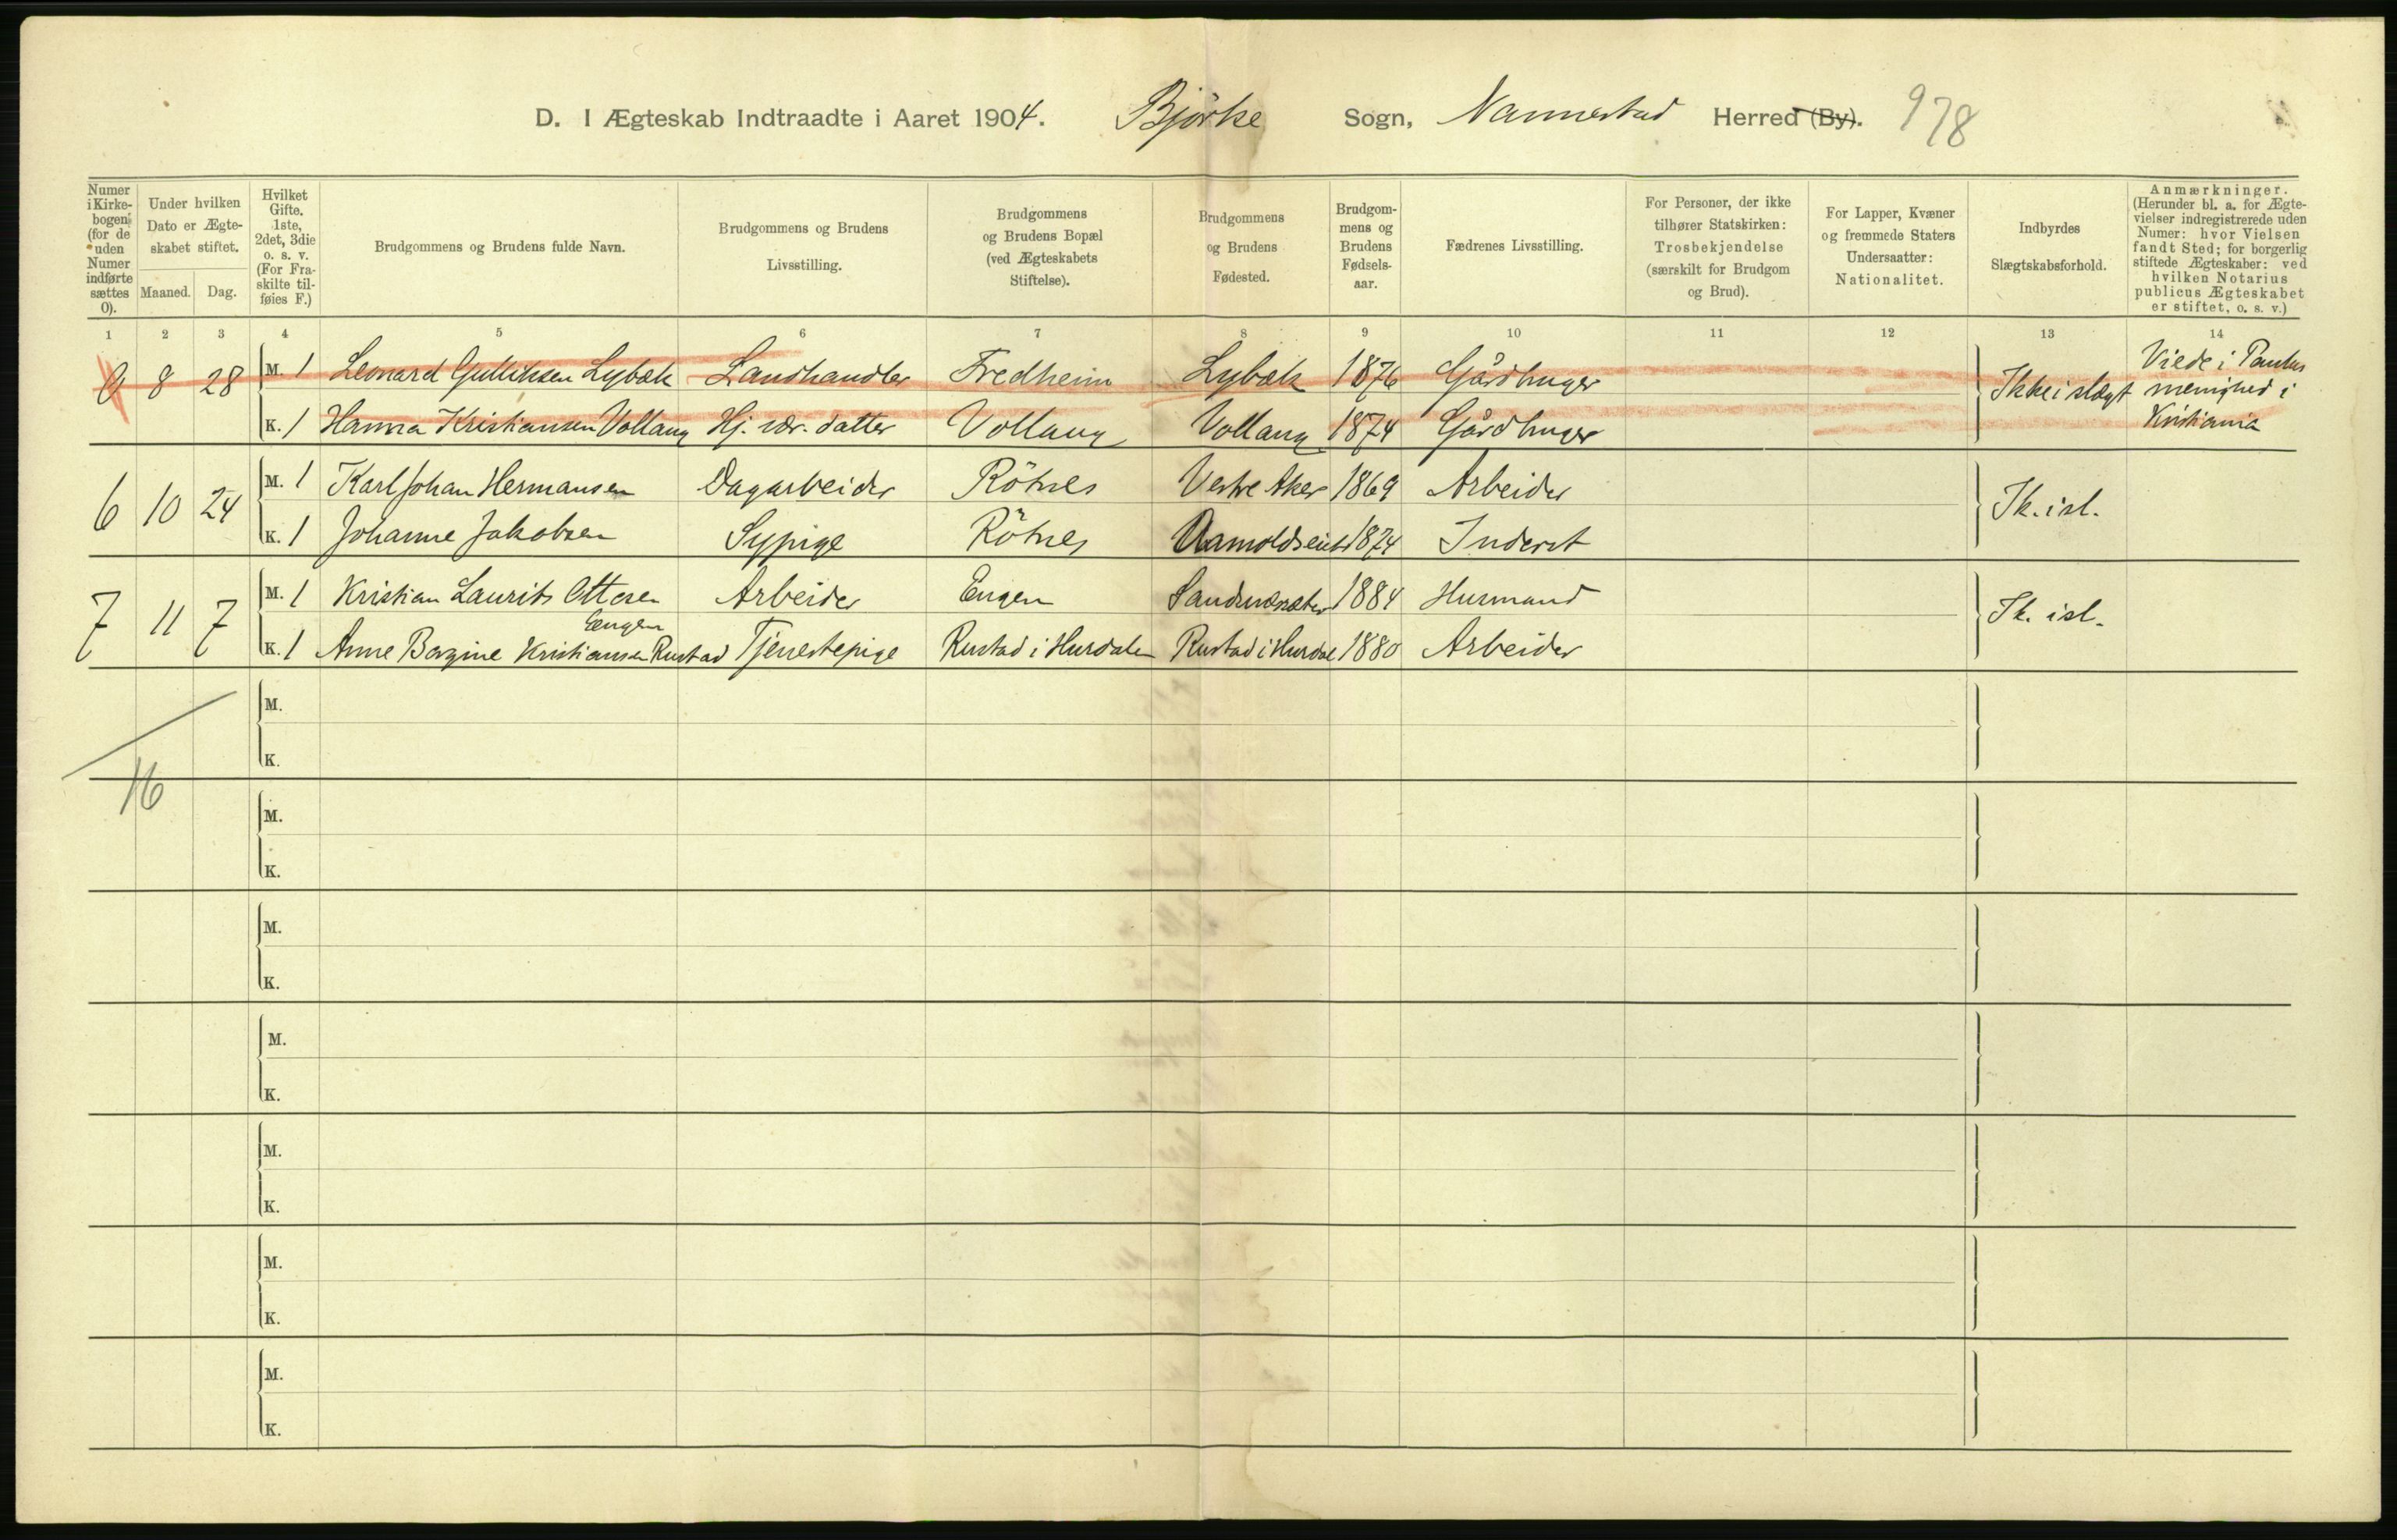 D. I Ægteskab Indtraadte i Aaret 1904. Björke Sogn, Nannestad Herred (By). 978
Numer i Kirkebogen (for de uden Numer indførte sættes 0).
Under hvilken Dato er Ægteskabet stiftet.
Maaned. Dag.
Hvilket Gifte. 1ste, 2det, 3die o. s. v. (For Fraskilte tilføies F.)
Brudgommens og Brudens fulde Navn.
Brudgommens og Brudens Livsstilling.
Brudgommens og Brudens Bopæl (ved Ægteskabets Stiftelse).
Brudgommens og Brudens Fødested.
Brudgommens og Brudens Fødselsaar.
Fædrenes Livsstilling.
For Personer, der ikke tilhører Statskirken: Trosbekjendelse (særskilt for Brudgom og Brud).
For Lapper, Kvæner og fremmede Staters Undersaatter: Nationalitet.
Indbyrdes Slægtskabsforhold.
Anmærkninger. (Herunder bl. a. for Ægtevielser indregistrerede uden Numer: hvor Vielsen fandt Sted; for borgerlig stiftede Ægteskaber: ved hvilken Notarius publicus Ægteskabet er stiftet, o. s. v.)
1 2 3 4 5 6 7 8 9 10 11 12 13 14
0 8 28 M. 1 Leonard Gulliksen Lybæk Landhandler Fredheim Lybæk 1876 Gårdbruger Ikke i slægt Viede i Paulus menighed i Kristiania
K. 1 Hanna Kristiansen Vollaug Hj. vær. datter Vollaug Vollaug 1874 Gårdbruger
6 10 24 M. 1 Karl Johan Hermansen Dagarbeider Rötnes Vestre Aker 1869 Arbeider Ik. i sl.
K. 1 Johanne Jakobsen Sypige Rötnes 1874 Inderst
7 11 7 M. 1 Kristian Laurits Ottesen Engen Arbeider Engen 1884 Husmand Ik. i sl.
K. 1 Anne Bergine Kristiansen Rustad Tjenestepige Rustad i Hurdalen Rustad i Hurdal 1880 Arbeider
M.
K.
16
M.
K.
M.
K.
M.
K.
M.
K.
M.
K.
M.
K.